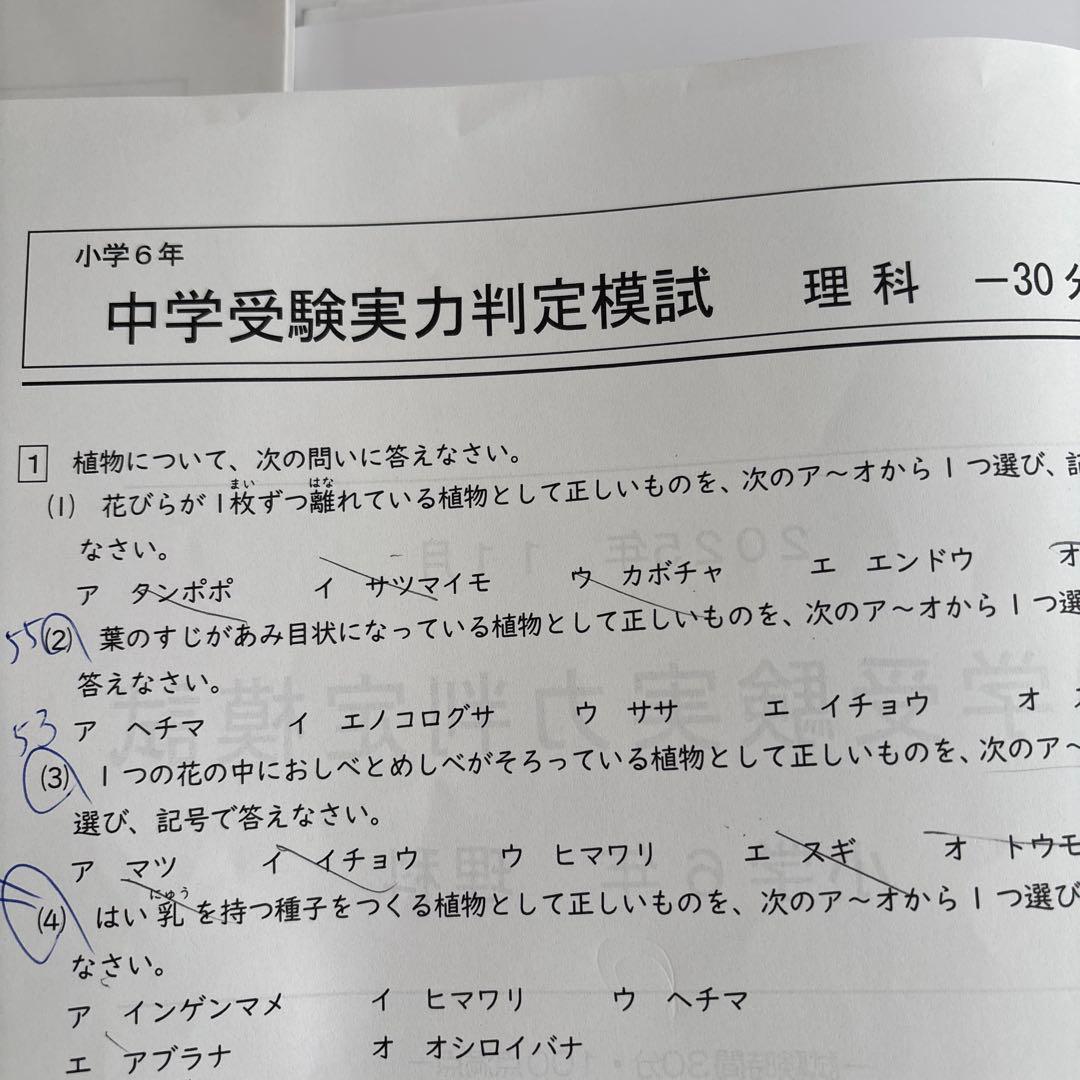 小学6年
中学受験実力判定模試 理科 －30分
1 植物について、次の問いに答えなさい。
(1) 花びらが1枚ずつ離れている植物として正しいものを、次のア～オから1つ選び、記
まい はな
なさい。
ア タンポポ イ サツマイモ ウ カボチャ エ エンドウ オ
55 (2) 葉のすじがあみ目状になっている植物として正しいものを、次のア～オから1つ選
答えなさい。
53 ア ヘチマ イ エノコログサ ウ ササ エ イチョウ オ
(3) 1つの花の中におしべとめしべがそろっている植物として正しいものを、次のア～
選び、記号で答えなさい。
ア マツ イ イチョウ ウ ヒマワリ エ スギ オ トウモ
にゅう
(4) はい乳を持つ種子をつくる植物として正しいものを、次のア～オから1つ選び
なさい。
ア インゲンマメ イ ヒマワリ ウ ヘチマ
エ アブラナ オ オシロイバナ
2025年 11月
学受験実力判定模試
小学6年 理科